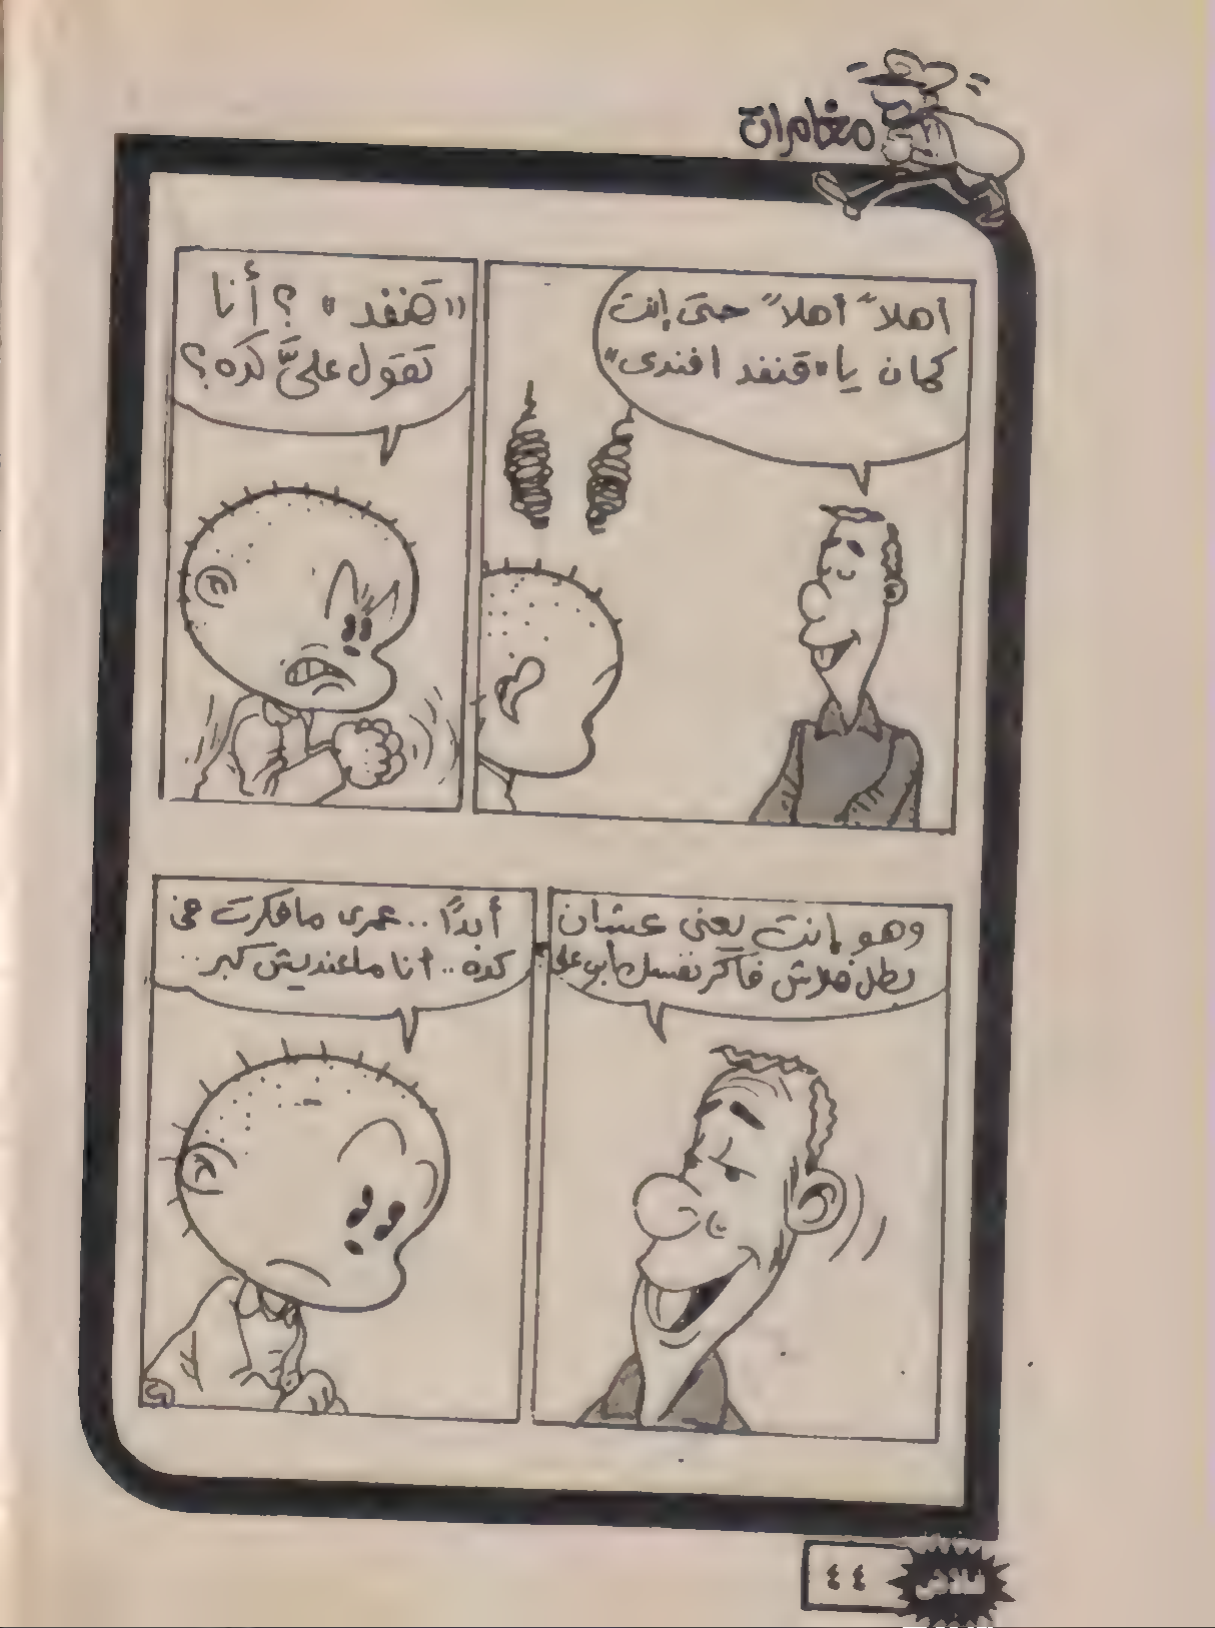 مغامرات
أهلاً أهلاً حتى إنت
كمان يا «قنفد افندى»
«قنفد» ؟ أنا
تقول علىَّ كده ؟
وهو إنت يعنى عشان
بطل فلاش فاكر نفسك
أبداً .. عمرى مافكرت فى
كده .. أنا ماعنديش كبر ..
فلاش
٤٤